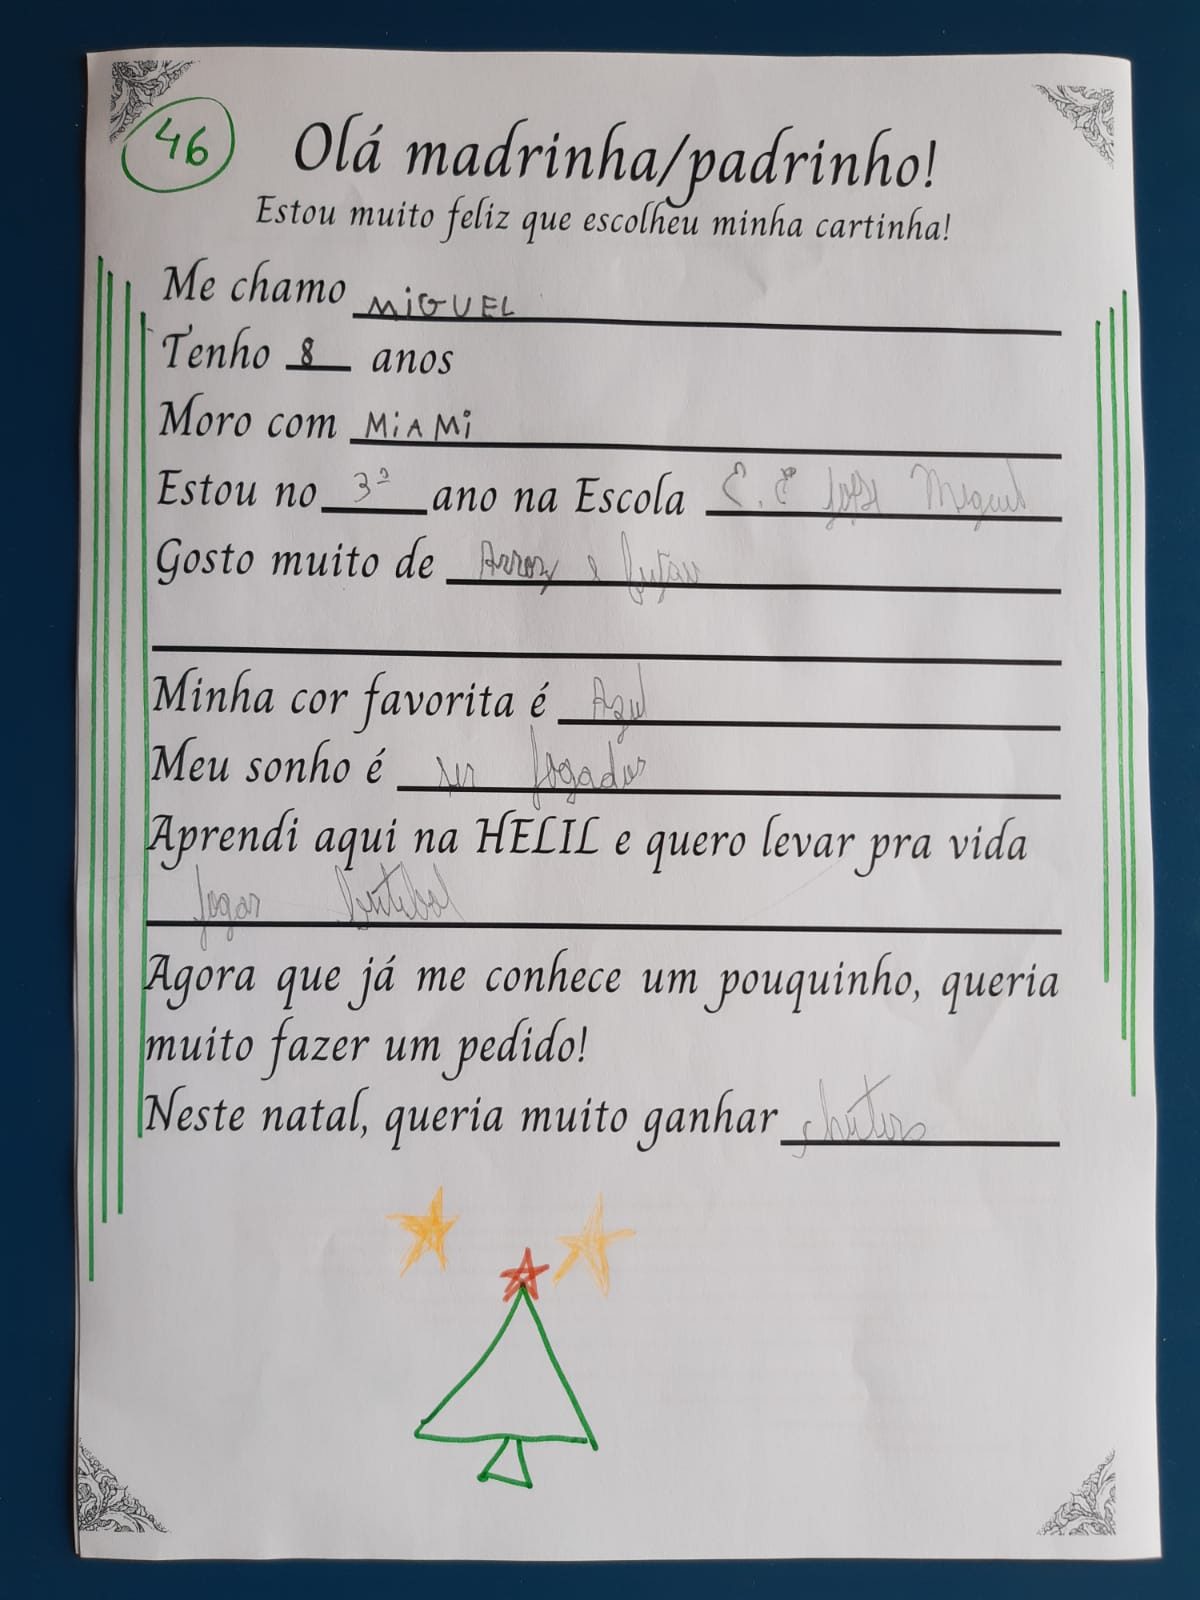 46
Olá madrinha/padrinho!
Estou muito feliz que escolheu minha cartinha!
Me chamo MiGUEL
Tenho 8 anos
Moro com MiAMi
Estou no 3º ano na Escola E. E José Miguel
Gosto muito de Arroz e feijão
Minha cor favorita é Azul
Meu sonho é ser jogador
Aprendi aqui na HELIL e quero levar pra vida
jogar futebol
Agora que já me conhece um pouquinho, queria
muito fazer um pedido!
Neste natal, queria muito ganhar